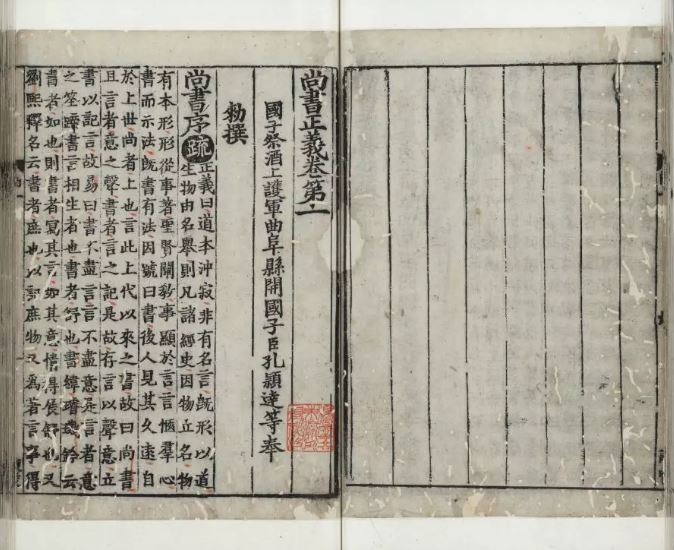 尚書正義卷第二
國子祭酒上護軍曲阜縣開國子臣孔穎達等奉
勑撰
尚書序疏正義曰道本沖寂非有名言旣形以道
生物由名舉則凡諸經史因物立名物
有本形形從事著聖賢闡教事顯於言言愜羣心
書而示法旣書有法因號曰書後人見其久遠自
於上世尚者上也言此上代以來之書故曰尚書
且言者意之聲書者言之記是故存言以聲意立
書以記言故易曰書不盡言言不盡意是言者意
之筌蹄書言相生者也書者舒也書緯璿璣鈐云
書者如也則書者寫其言如其意情得展舒也又
劉熙釋名云書者庶也以記庶物又為著言事得